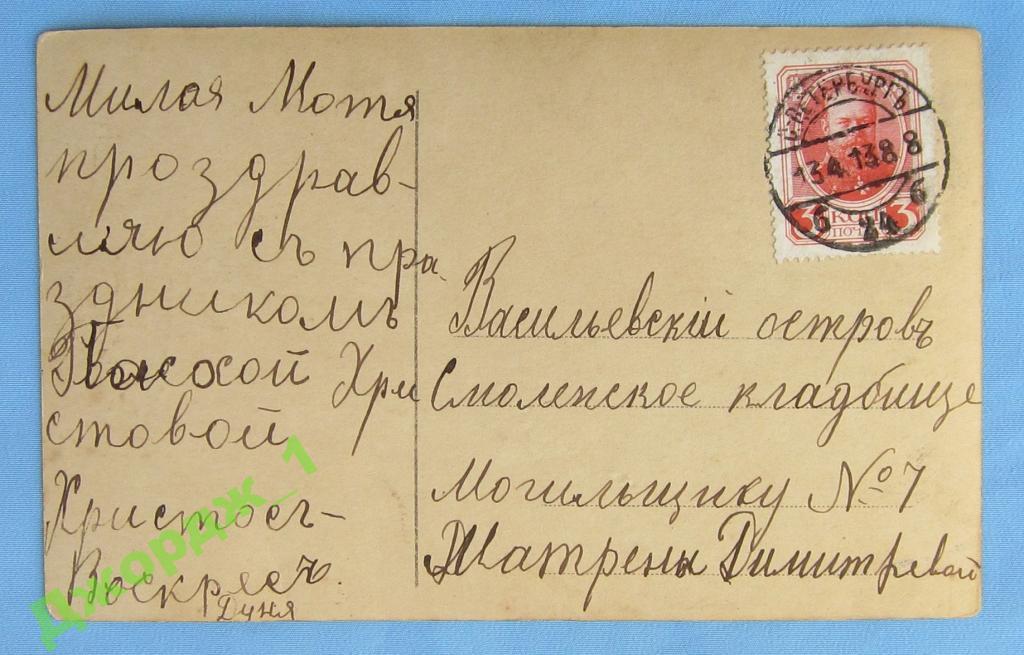 Милая Мотя
проздрав-
ляю съ пра-
здникомъ
Хри
стовой
Христосъ-
Воскресъ.
Дуня
С.ПЕТЕРБУРГЪ
13.4.13.8
8
6 24 6
3 КОП 3
ПОЧ
Васильевскій островъ
Смоленское кладбище
Могильщику № 7
Матрены Димитревой
Джордж_1